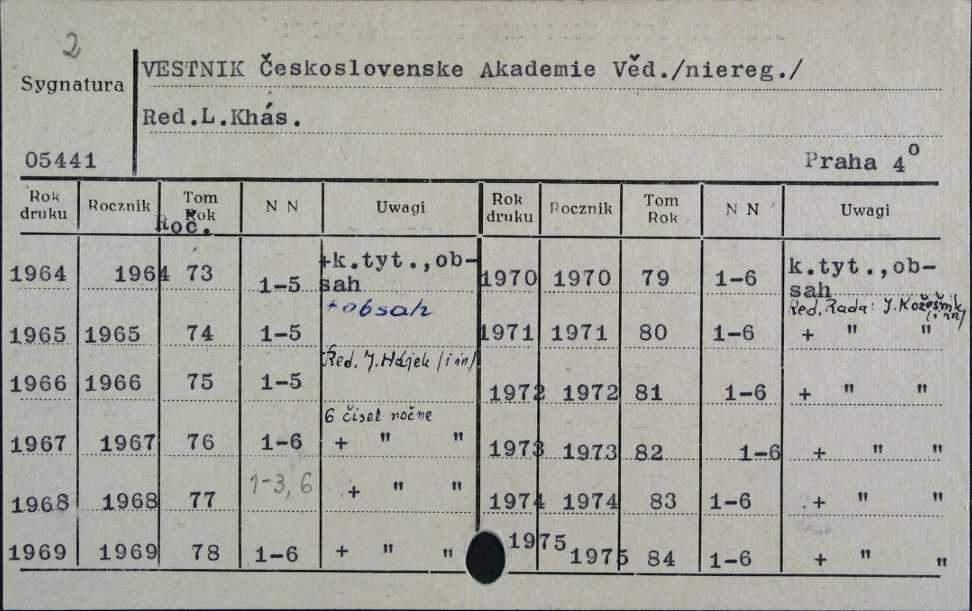 2
Sygnatura
VESTNIK Československe Akademie Věd./niereg./
Red.L.Khás.
05441
Praha 4º
Rok druku Rocznik Tom Rok Roč. N N Uwagi Rok druku Rocznik Tom Rok N N Uwagi
1964 1964 73 1-5 +k.tyt.,ob-sah 1970 1970 79 1-6 k.tyt.,ob-sah
+obsah Red. Rada: J. Kožešník /i nn/
1965 1965 74 1-5 1971 1971 80 1-6 + " "
Red. J. Hájek /i nn/
1966 1966 75 1-5 1972 1972 81 1-6 + " "
6 čisel ročne
1967 1967 76 1-6 + " " 1973 1973 82 1-6 + " "
1968 1968 77 1-3, 6 + " " 1974 1974 83 1-6 + " "
1969 1969 78 1-6 + " " 1975 1975 84 1-6 + " "